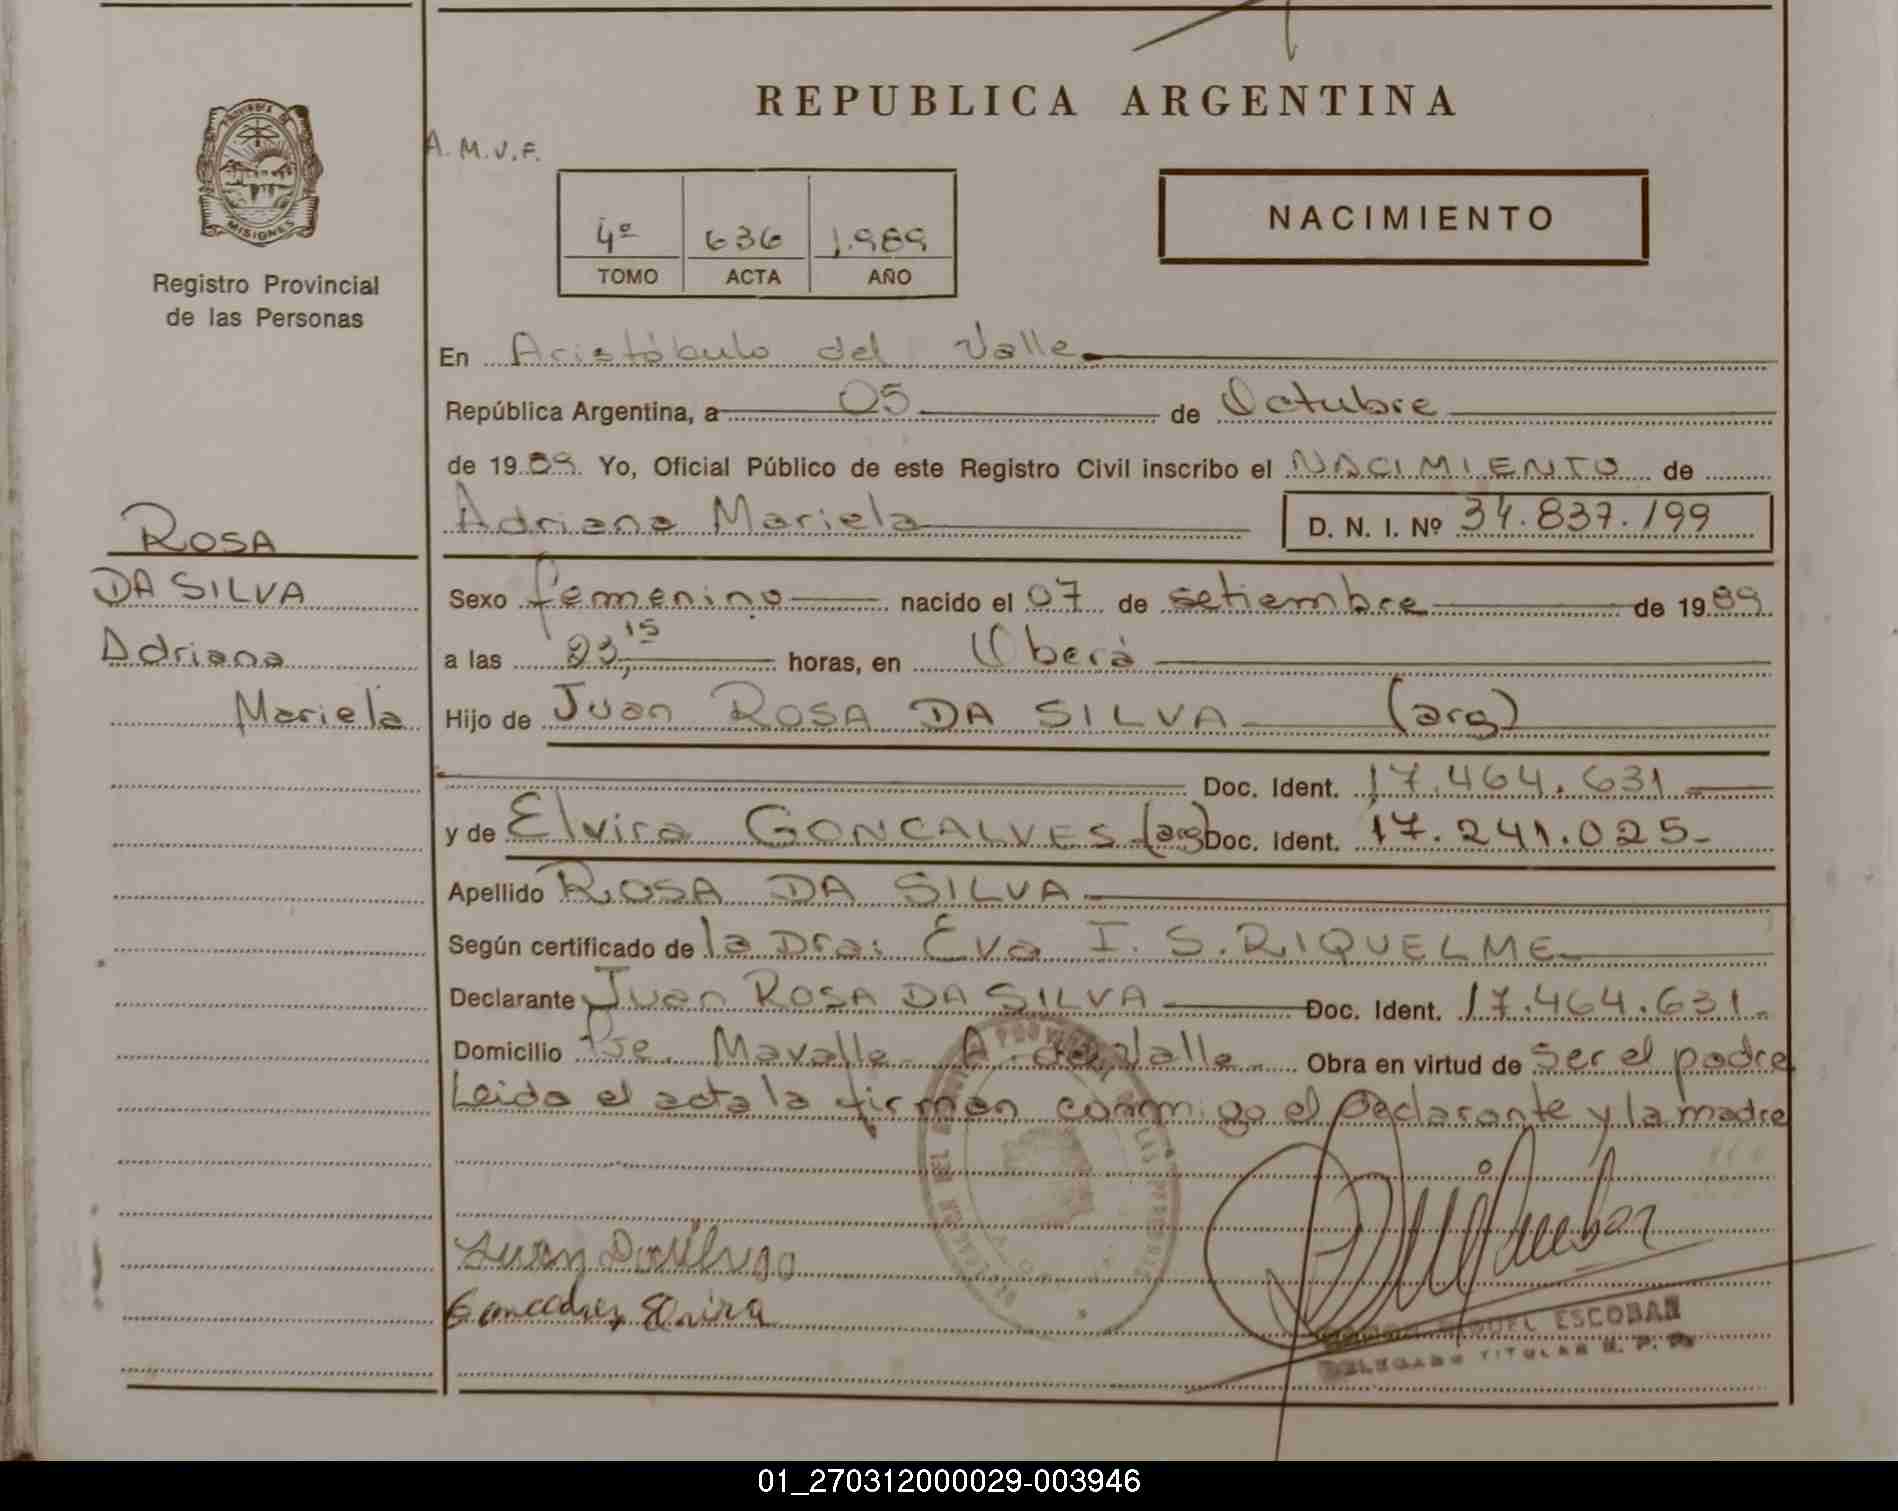 REPUBLICA ARGENTINA
PROVINCIA DE
MISIONES
Registro Provincial
de las Personas
A.M.V.F.
4º 636 1.989
TOMO ACTA AÑO
NACIMIENTO
En Aristóbulo del Valle
República Argentina, a 05 de Octubre
de 1989. Yo, Oficial Público de este Registro Civil inscribo el NACIMIENTO de
Adriana Mariela D. N. I. Nº 34.837.199
ROSA
DA SILVA
Adriana
Mariela
Sexo femenino nacido el 07 de setiembre de 1989
a las 23,15 horas, en Oberá
Hijo de Juan ROSA DA SILVA (arg)
Doc. Ident. 17.464.631
y de Elvira GONCALVES (arg) Doc. Ident. 17.241.025-
Apellido ROSA DA SILVA
Según certificado de la Dra. Eva I. S. RIQUELME
Declarante Juan ROSA DA SILVA Doc. Ident. 17.464.631.
Domicilio Pje. Mavalle A. del Valle Obra en virtud de ser el padre
Leida el acta la firman conmigo el Declarante y la madre
MIGUEL ESCOBAR
DELEGADO TITULAR R. P. P.
01_270312000029-003946